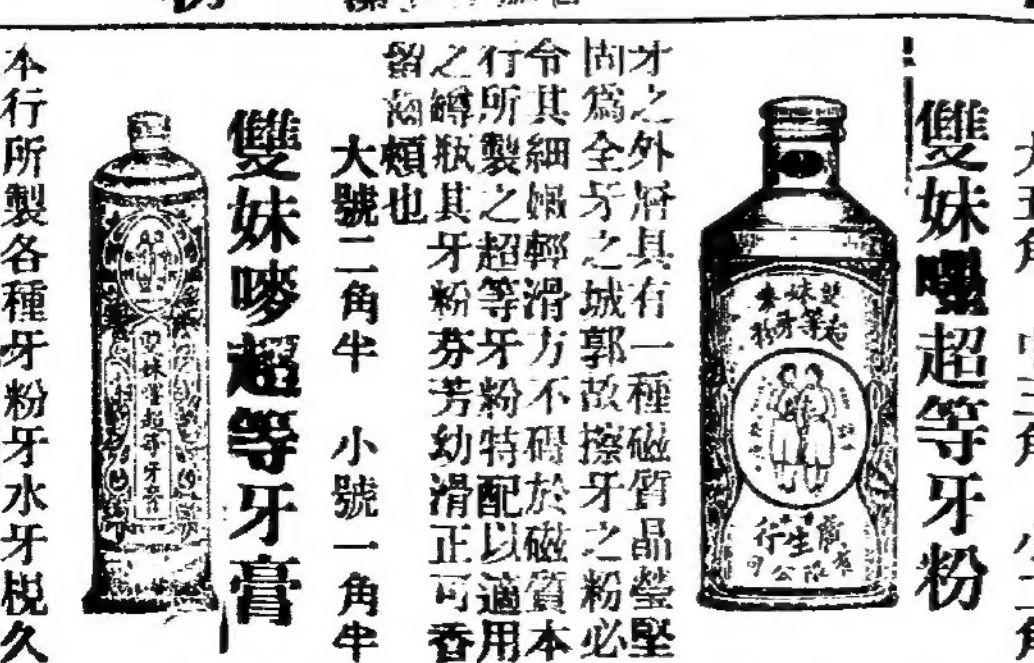 大五角 中三角 小二角
雙妹嚜超等牙粉
雙妹嚜
超等牙粉
廣生行
有限公司
才之外層具有一種磁質晶瑩堅
固爲全牙之城郭故擦牙之粉必
令其細嫩輕滑方不碍於磁質本
行所製之超等牙粉特配以適用
之罇瓶其牙粉芬芳幼滑正可香
留齒頰也
大號二角半 小號一角半
雙妹嘜超等牙膏
雙妹嚜超等牙膏
本行所製各種牙粉牙水牙梘久